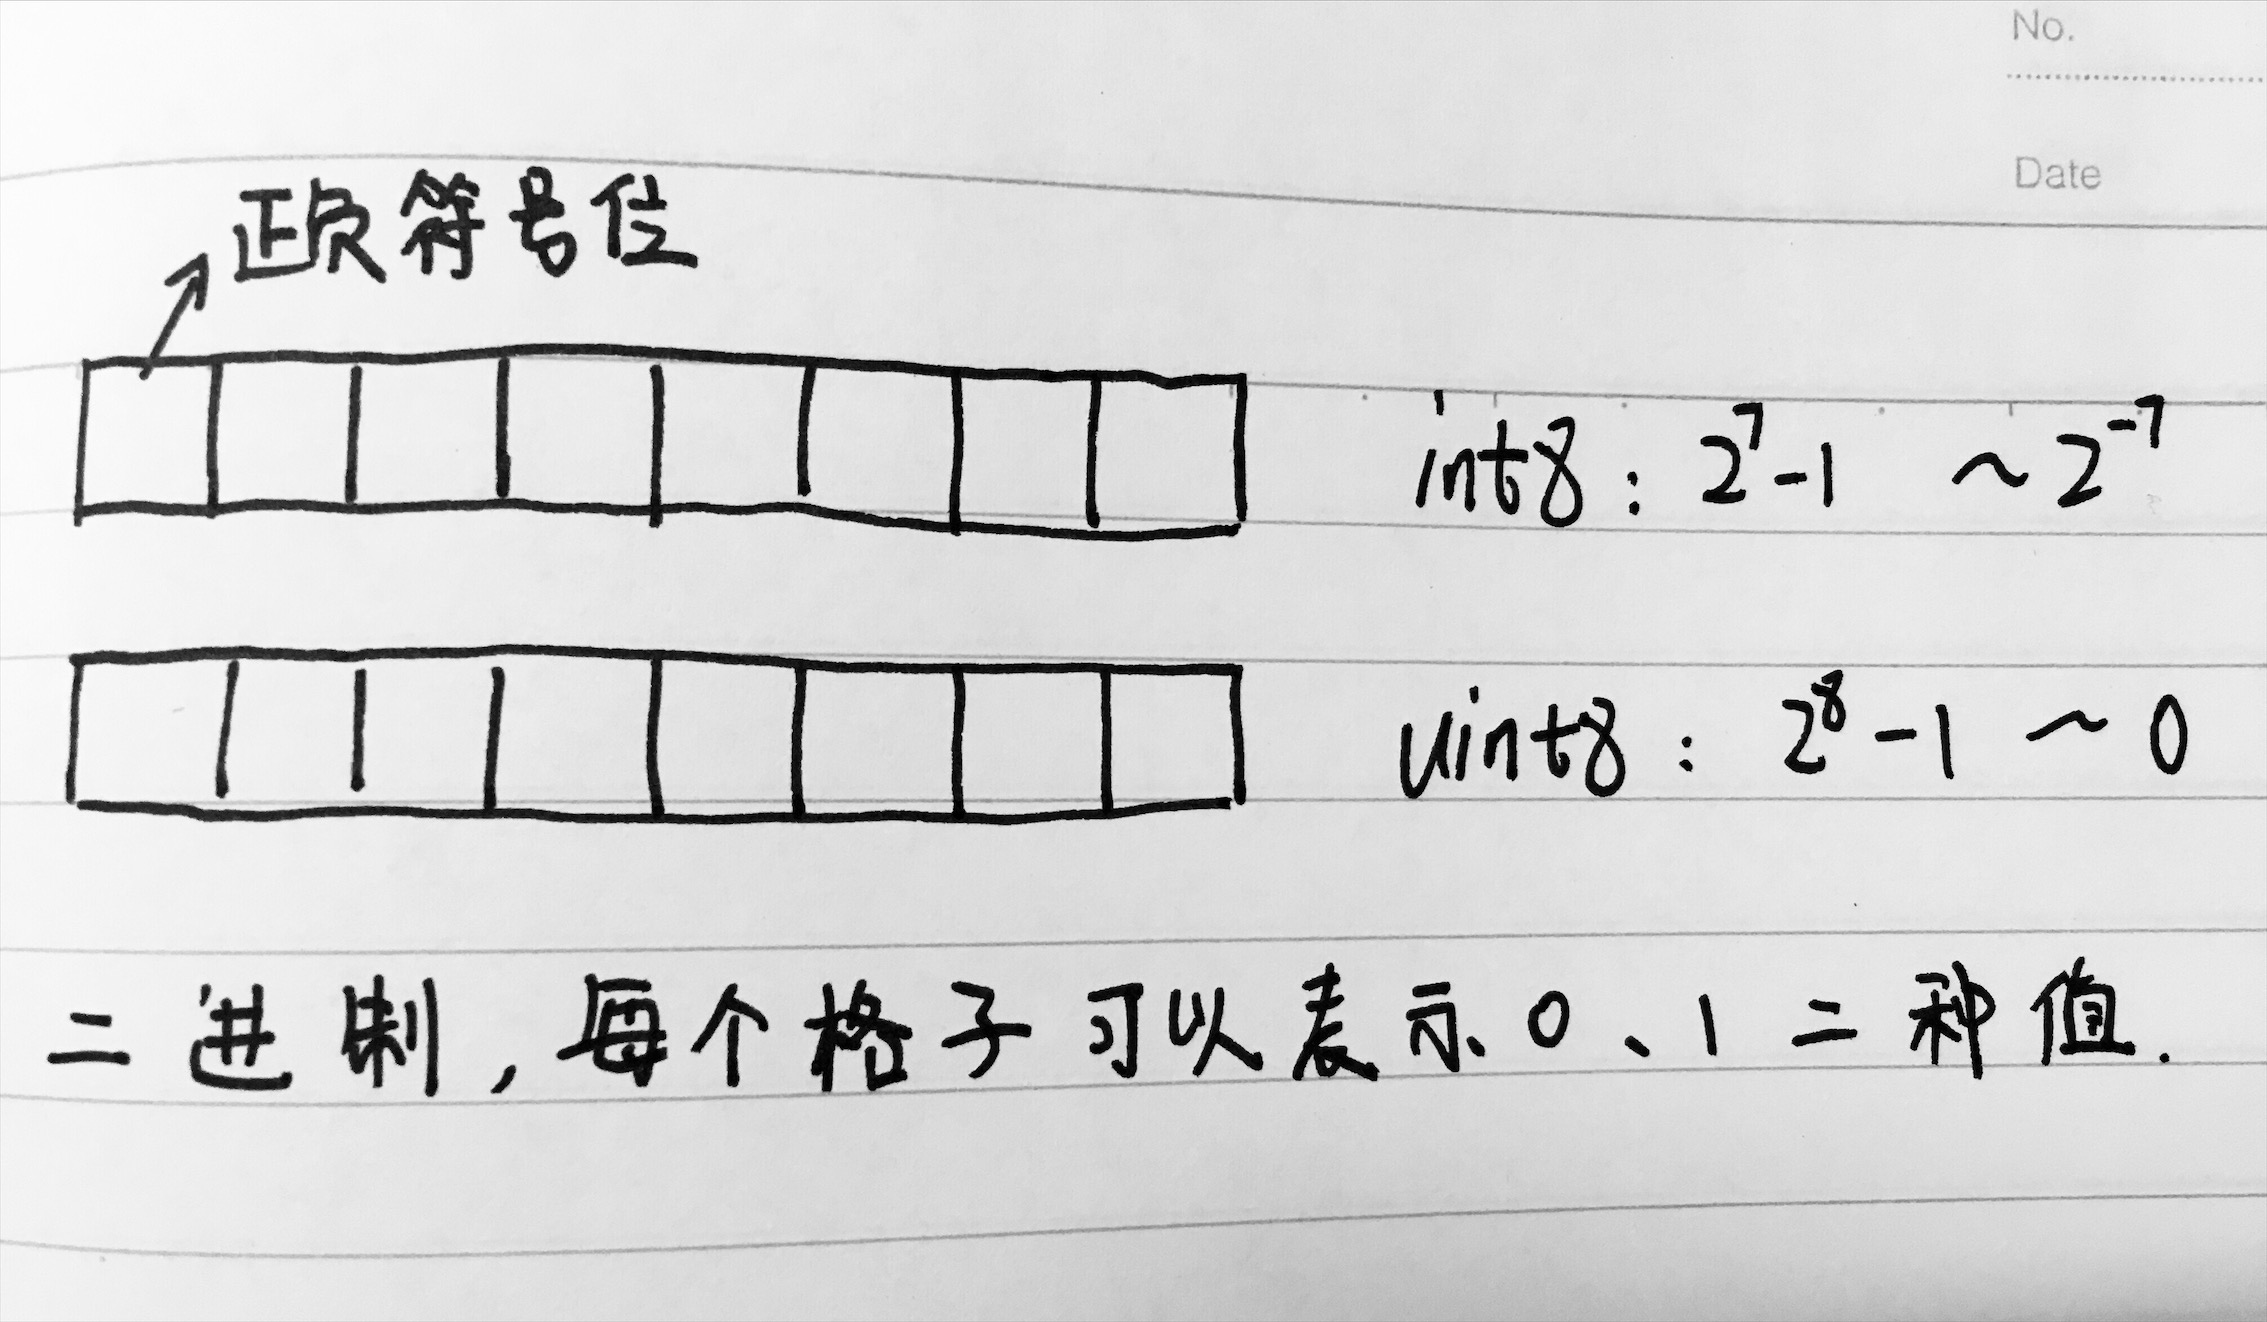 No.
Date
正负符号位
int8 : 2⁷-1 ~ 2⁻⁷
uint8 : 2⁸-1 ~ 0
二进制,每个格子可以表示0、1二种值.